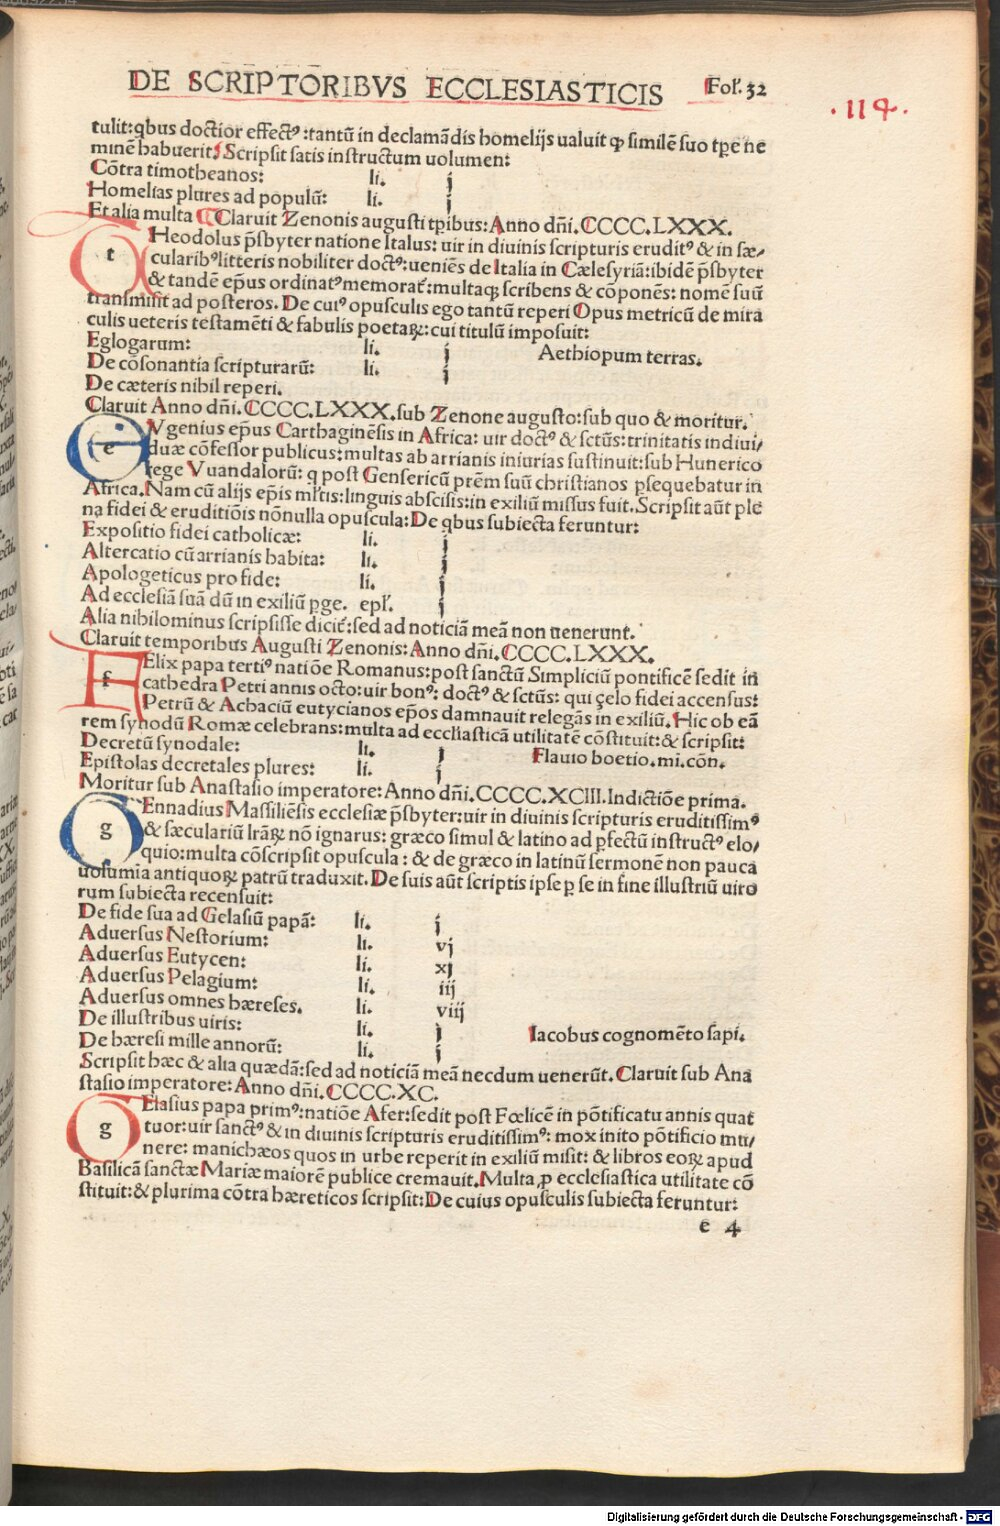 DE SCRIPTORIBVS ECCLESIASTICIS Fol. 32
.114.
tulit:qbus doctior effectꝰ:tantū in declamādis homelijs ualuit ꝙ similē suo tꝑe ne
minē habuerit: Scripsit satis instructum uolumen:
Cōtra timotheanos: li. j
Homelias plures ad populū: li. j
Et alia multa Claruit Zenonis augusti tpibus: Anno dñi. CCCC.LXXX.
t Heodolus p̄sbyter natione Italus: uir in diuinis scripturis eruditꝰ & in sæ/
cularibꝰ litteris nobiliter doctꝰ: ueniēs de Italia in Cælesyriā: ibidē p̄sbyter
& tandē ep̄us ordinatꝰ memorat̄: multaqꝫ scribens & cōponēs: nomē suū
transmisit ad posteros. De cuiꝰ opusculis ego tantū reperi Opus metricū de mira
culis ueteris testamēti & fabulis poetaꝝ: cui titulū imposuit:
Eglogarum: li. j Aethiopum terras.
De cōsonantia scripturarū: li. j
De cæteris nihil reperi.
Claruit Anno dñi. CCCC.LXXX. sub Zenone augusto: sub quo & moritur.
e Vgenius ep̄us Carthaginēsis in Africa: uir doctꝰ & sctūs: trinitatis indiui/
duæ cōfessor publicus: multas ab arrianis iniurias sustinuit: sub Hunerico
rege Vuandalorū: q post Gensericū prēm suū christianos ꝑsequebatur in
Africa. Nam cū alijs ep̄is ml̄tis: linguis abscisis: in exiliū missus fuit. Scripsit aūt ple
na fidei & eruditiōis nōnulla opuscula: De qbus subiecta feruntur:
Expositio fidei catholicæ: li. j
Altercatio cū arrianis habita: li. j
Apologeticus pro fide: li. j
Ad ecclesiā suā dū in exiliū ꝑge. epl̄. j
Alia nihilominus scripsisse dicit̄: sed ad noticiā meā non uenerunt.
Claruit temporibus Augusti Zenonis: Anno dñi. CCCC.LXXX.
f Elix papa tertiꝰ natiōe Romanus: post sanctū Simpliciū pontificē sedit in
cathedra Petri annis octo: uir bonꝰ: doctꝰ & sctūs: qui çelo fidei accensus:
Petrū & Achaciū eutycianos ep̄os damnauit relegās in exiliū. Hic ob eā
rem synodū Romæ celebrans: multa ad eccl̄iasticā utilitatē cōstituit: & scripsit:
Decretū synodale: li. j Flauio boetio. mi. cōn.
Epistolas decretales plures: li. j
Moritur sub Anastasio imperatore: Anno dñi. CCCC.XCIII. Indictiōe prima.
g Ennadius Massiliēsis ecclesiæ p̄sbyter: uir in diuinis scripturis eruditissimꝰ
& sæculariū lr̄aꝝ nō ignarus: græco simul & latino ad ꝑfectū instructꝰ elo/
quio: multa cōscripsit opuscula: & de græco in latinū sermonē non pauca
uolumia antiquoꝝ patrū traduxit. De suis aūt scriptis ipse ꝑ se in fine illustriū uiro
rum subiecta recensuit:
De fide sua ad Gelasiū papā: li. j
Aduersus Nestorium: li. vj
Aduersus Eutycen: li. xj
Aduersus Pelagium: li. iij
Aduersus omnes hæreses. li. viij
De illustribus uiris: li. j Iacobus cognomēto sapi.
De hæresi mille annorū: li. j
Scripsit hæc & alia quædā: sed ad noticiā meā necdum uenerūt. Claruit sub Ana
stasio imperatore: Anno dñi. CCCC.XC.
g Elasius papa primꝰ: natiōe Afer: sedit post Fœlicē in pōtificatu annis quat
tuor: uir sanctꝰ & in diuinis scripturis eruditissimꝰ: mox inito pōtificio mu/
nere: manichæos quos in urbe reperit in exiliū misit: & libros eoꝝ apud
Basilicā sanctæ Mariæ maiorē publice cremauit. Multa ꝓ ecclesiastica utilitate cō
stituit: & plurima cōtra hæreticos scripsit: De cuius opusculis subiecta feruntur:
e 4
Digitalisierung gefördert durch die Deutsche Forschungsgemeinschaft - DFG